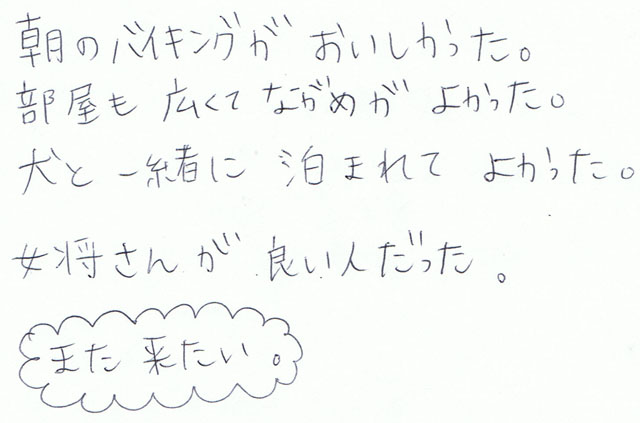 朝のバイキングが おいしかった。
部屋も 広くて ながめが よかった。
犬と 一緒に 泊まれて よかった。
女将さんが 良い人だった。
また 来たい。